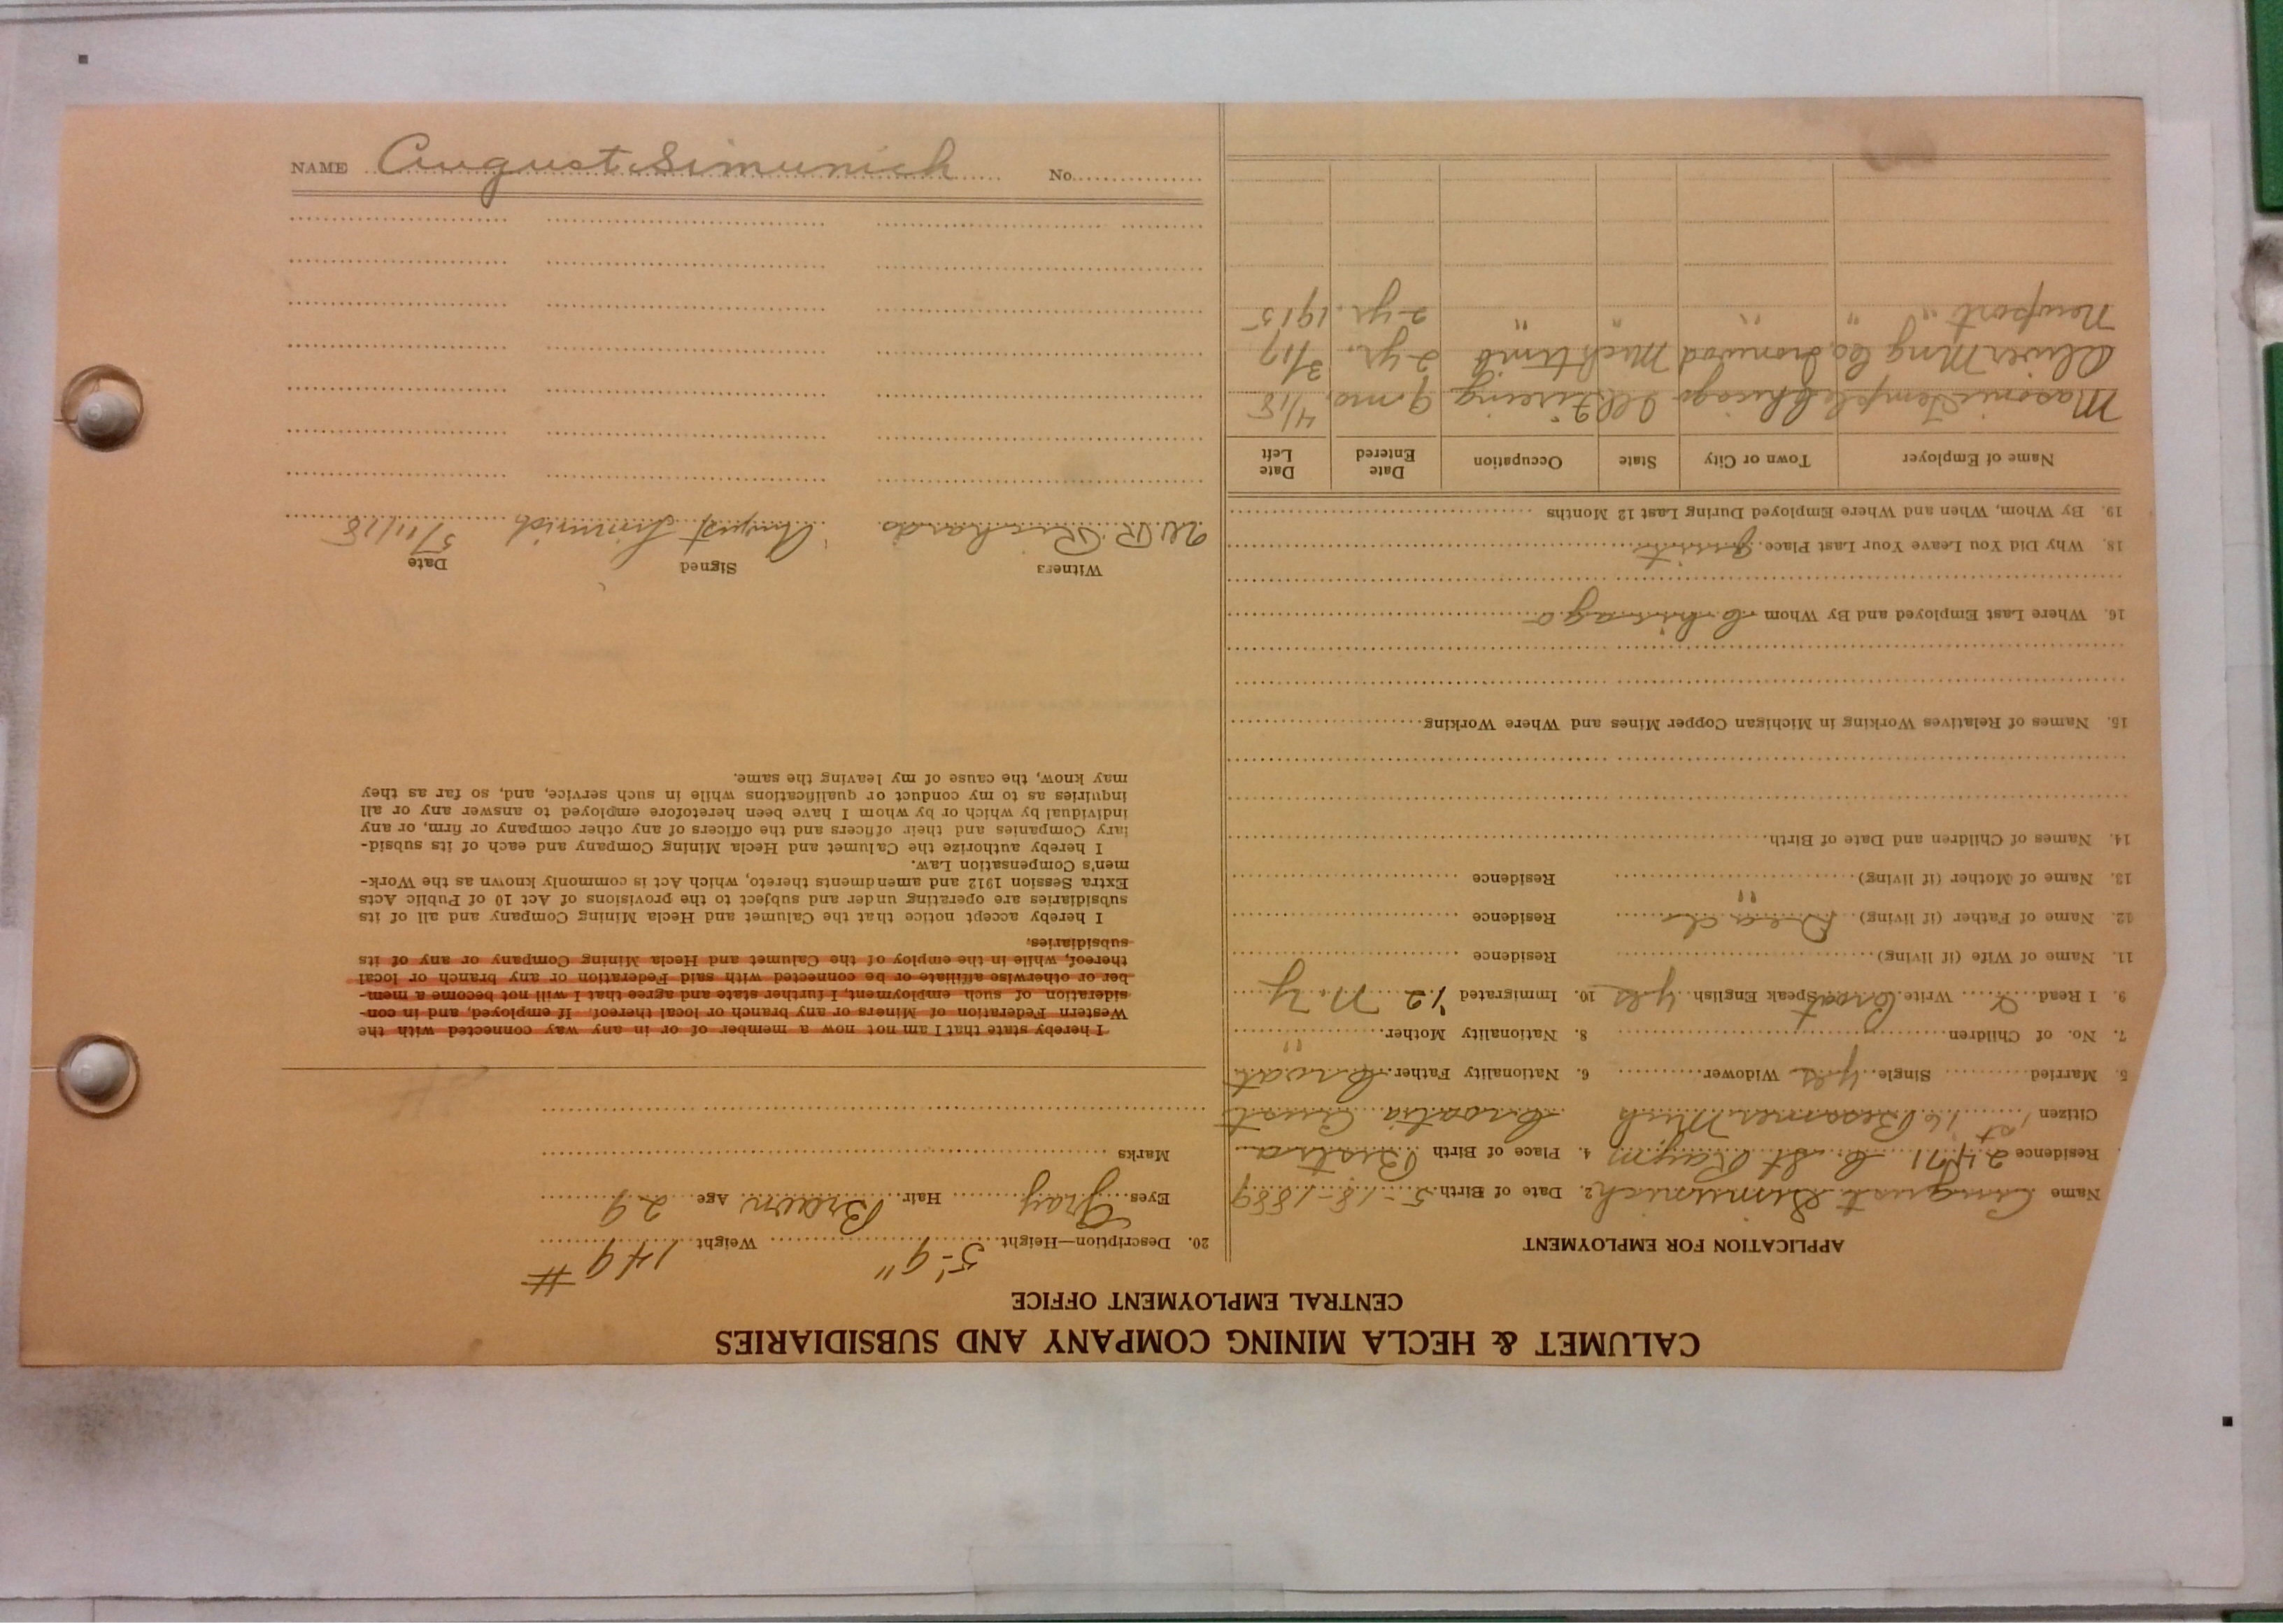 CALUMET & HECLA MINING COMPANY AND SUBSIDIARIES
CENTRAL EMPLOYMENT OFFICE
APPLICATION FOR EMPLOYMENT
Name August Simunich 2. Date of Birth 5-18-1889
Residence 2471 C St Raym 4. Place of Birth Bistra
Citizen 1st 16 Bessemer Mich Croatia Aust
5. Married Single yes Widower 6. Nationality Father Croat
7. No. of Children 8. Nationality Mother "
9. I Read Write Croat Speak English yes 10. Immigrated '12 N.Y
11. Name of Wife (if living) Residence
12. Name of Father (if living) Dead Residence
13. Name of Mother (if living) " Residence
14. Names of Children and Date of Birth
15. Names of Relatives Working in Michigan Copper Mines and Where Working
16. Where Last Employed and By Whom Chicago
18. Why Did You Leave Your Last Place quit
19. By Whom, When and Where Employed During Last 12 Months
Name of Employer Town or City State Occupation Date Entered Date Left
Masonic Temple Chicago Ill Fireing 9 mo. 4/18
Oliver Mng Co Ironwood Mich timb 2 yr. 3/17
Newport " " " " " 2 yr. 1915
20. Description—Height 5'-9" Weight 149 #
Eyes Gray Hair Brown Age 29
Marks
I hereby state that I am not now a member of or in any way connected with the
Western Federation of Miners or any branch or local thereof. If employed, and in con-
sideration of such employment, I further state and agree that I will not become a mem-
ber or otherwise affiliate or be connected with said Federation or any branch or local
thereof, while in the employ of the Calumet and Hecla Mining Company or any of its
subsidiaries.
I hereby accept notice that the Calumet and Hecla Mining Company and all of its
subsidiaries are operating under and subject to the provisions of Act 10 of Public Acts
Extra Session 1912 and amendments thereto, which Act is commonly known as the Work-
men's Compensation Law.
I hereby authorize the Calumet and Hecla Mining Company and each of its subsid-
iary Companies and their officers and the officers of any other company or firm, or any
individual by which or by whom I have been heretofore employed to answer any or all
inquiries as to my conduct or qualifications while in such service, and, so far as they
may know, the cause of my leaving the same.
Witness Signed Date
W.R. Richards August Simunich 5/11/18
NAME August Simunich No.